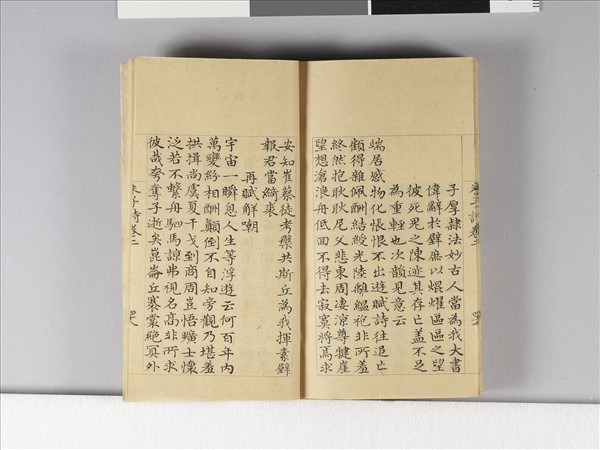 子厚隷法妙古人當為我大書
偉辭於壁庶以熠燿區區之望
彼死晃之陳迹其存亡盖不足
為重輕也次韻見意云
端居感物化悵恨不出遊賦詩往追亡
顧得雜佩酬結綬光陸離緼袍非所羞
終然抱耿耿尼父悲東周凄涼尊犍崖
望想滄浪舟低回不得去寂寞將焉求
安知崔蔡徒考槃共斯丘為我揮素壁
報君當綺裘
再賦解嘲
宇宙一瞬息人生等浮遊云何百年内
萬變紛相酬顛倒不自知旁觀乃堪羞
拱揖尚虞夏干戈到商周豈悟曠士懷
泛若不繫舟駟馬諒弗視名髙非所求
彼哉夸奪子逝矣崑崙丘褰裳絶冥外
朱子詩卷二